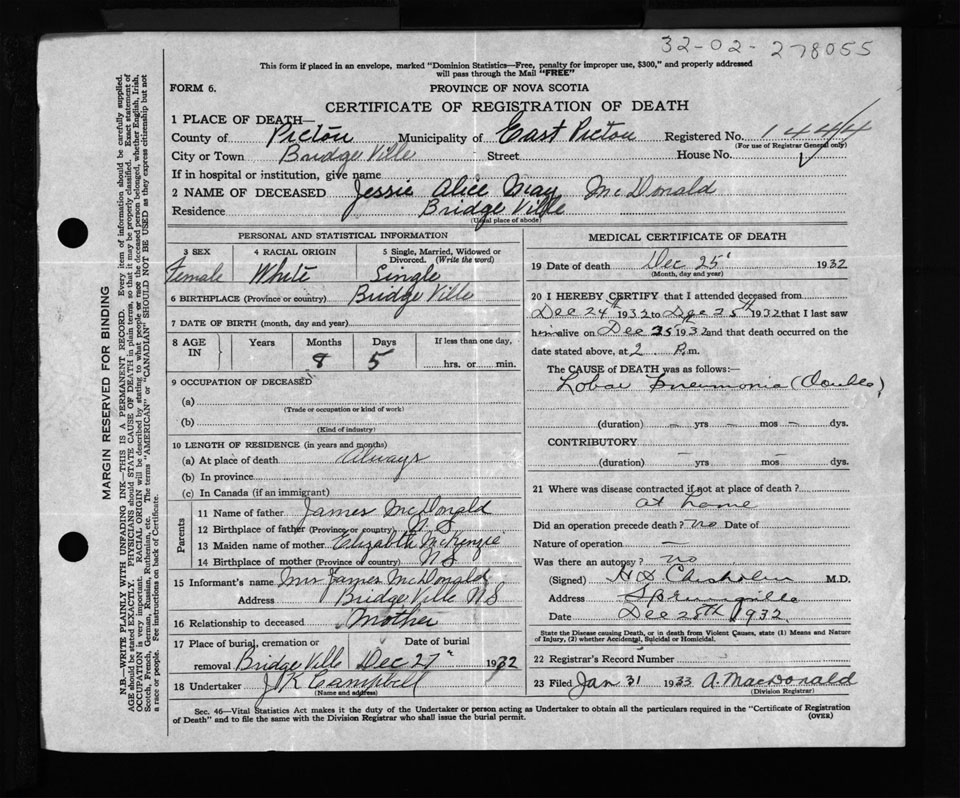 32-02-278055
This form if placed in an envelope, marked "Dominion Statistics—Free, penalty for improper use, $300," and properly addressed
will pass through the Mail "FREE"
FORM 6. PROVINCE OF NOVA SCOTIA
CERTIFICATE OF REGISTRATION OF DEATH
1 PLACE OF DEATH—
County of Pictou Municipality of East Pictou Registered No. 1444
(For use of Registrar General only)
City or Town Bridge Ville Street House No.
If in hospital or institution, give name
2 NAME OF DECEASED Jessie Alice May McDonald
Residence Bridge Ville
(Usual place of abode)
PERSONAL AND STATISTICAL INFORMATION
3 SEX 4 RACIAL ORIGIN 5 Single, Married, Widowed or
Divorced. (Write the word)
Female White Single
6 BIRTHPLACE (Province or country) Bridge Ville
7 DATE OF BIRTH (month, day and year)
8 AGE IN Years Months Days If less than one day,
8 5 hrs. or min.
9 OCCUPATION OF DECEASED
(a)
(Trade or occupation or kind of work)
(b)
(Kind of industry)
10 LENGTH OF RESIDENCE (in years and months)
(a) At place of death Always
(b) In province
(c) In Canada (if an immigrant)
Parents
11 Name of father James McDonald
12 Birthplace of father (Province or country) N.S
13 Maiden name of mother Elizabeth McKenzie
14 Birthplace of mother (Province or country) N.S
15 Informant's name Mrs James McDonald
Address Bridge Ville N S
16 Relationship to deceased Mother
17 Place of burial, cremation or Date of burial
removal Bridge Ville Dec 27 1932
18 Undertaker J K Campbell
(Name and address)
MEDICAL CERTIFICATE OF DEATH
19 Date of death Dec 25 1932
(Month, day and year)
20 I HEREBY CERTIFY that I attended deceased from
Dec 24th 1932 to Dec 25th 1932 that I last saw
him alive on Dec 25th 1932 and that death occurred on the
date stated above, at 2 P.m.
The CAUSE of DEATH was as follows:—
Lobar Pneumonia (Double)
(duration) — yrs — mos — dys.
CONTRIBUTORY
(duration) — yrs mos — dys.
21 Where was disease contracted if not at place of death?
at home
Did an operation precede death? no Date of
Nature of operation —
Was there an autopsy? no
(Signed) H D Chisholm M.D.
Address Springville
Date Dec 28th 1932
State the Disease causing Death, or in death from Violent Causes, state (1) Means and Nature
of Injury, (2) whether Accidental, Suicidal or Homicidal.
22 Registrar's Record Number
23 Filed Jan 31 1933 A. MacDonald
(Division Registrar)
Sec. 46—Vital Statistics Act makes it the duty of the Undertaker or person acting as Undertaker to obtain all the particulars required in the "Certificate of Registration
of Death" and to file the same with the Division Registrar who shall issue the burial permit. (OVER)
MARGIN RESERVED FOR BINDING
N.B.—WRITE PLAINLY WITH UNFADING INK—THIS IS A PERMANENT RECORD. Every item of information should be carefully supplied.
AGE should be stated EXACTLY. PHYSICIANS should STATE CAUSE OF DEATH in plain terms, so that it may be properly classified. Exact statement of
OCCUPATION is very important. RACIAL ORIGIN will be described by stating to what people or race the deceased person belonged, whether English, Irish,
Scotch, French, German, Russian, Ruthenian, etc. The terms "AMERICAN" or "CANADIAN" SHOULD NOT BE USED as they express citizenship but not
a race or people. See instructions on back of Certificate.